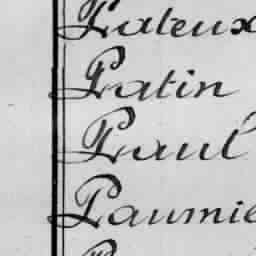 Pateux
Patin
Paul
Paumie